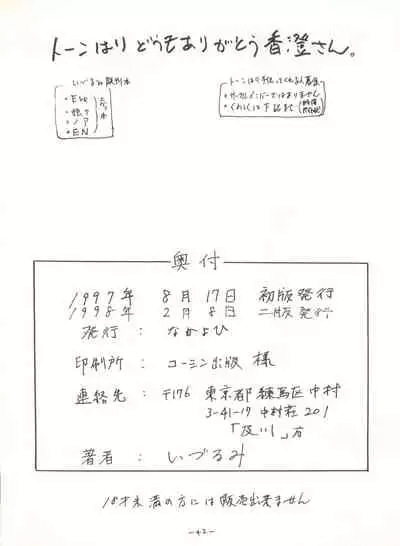 トーンはり どうもありがとう 香澄さん。
いづるみ既刊本
・Eve
・ノア
・EN
トーンはり手伝ってくれる人募金
・サークルメンバーではありません
・くわしくは下記まで
奥付
1997年 8月17日 初版発行
1998年 2月8日 二版発行
発行 : なかよひ
印刷所 : コーシン出版 様
連絡先 : 〒176 東京都練馬区中村
3-41-17 中村荘201
「及川」方
著者 : いづるみ
18才未満の方には販売出来ません
-42-